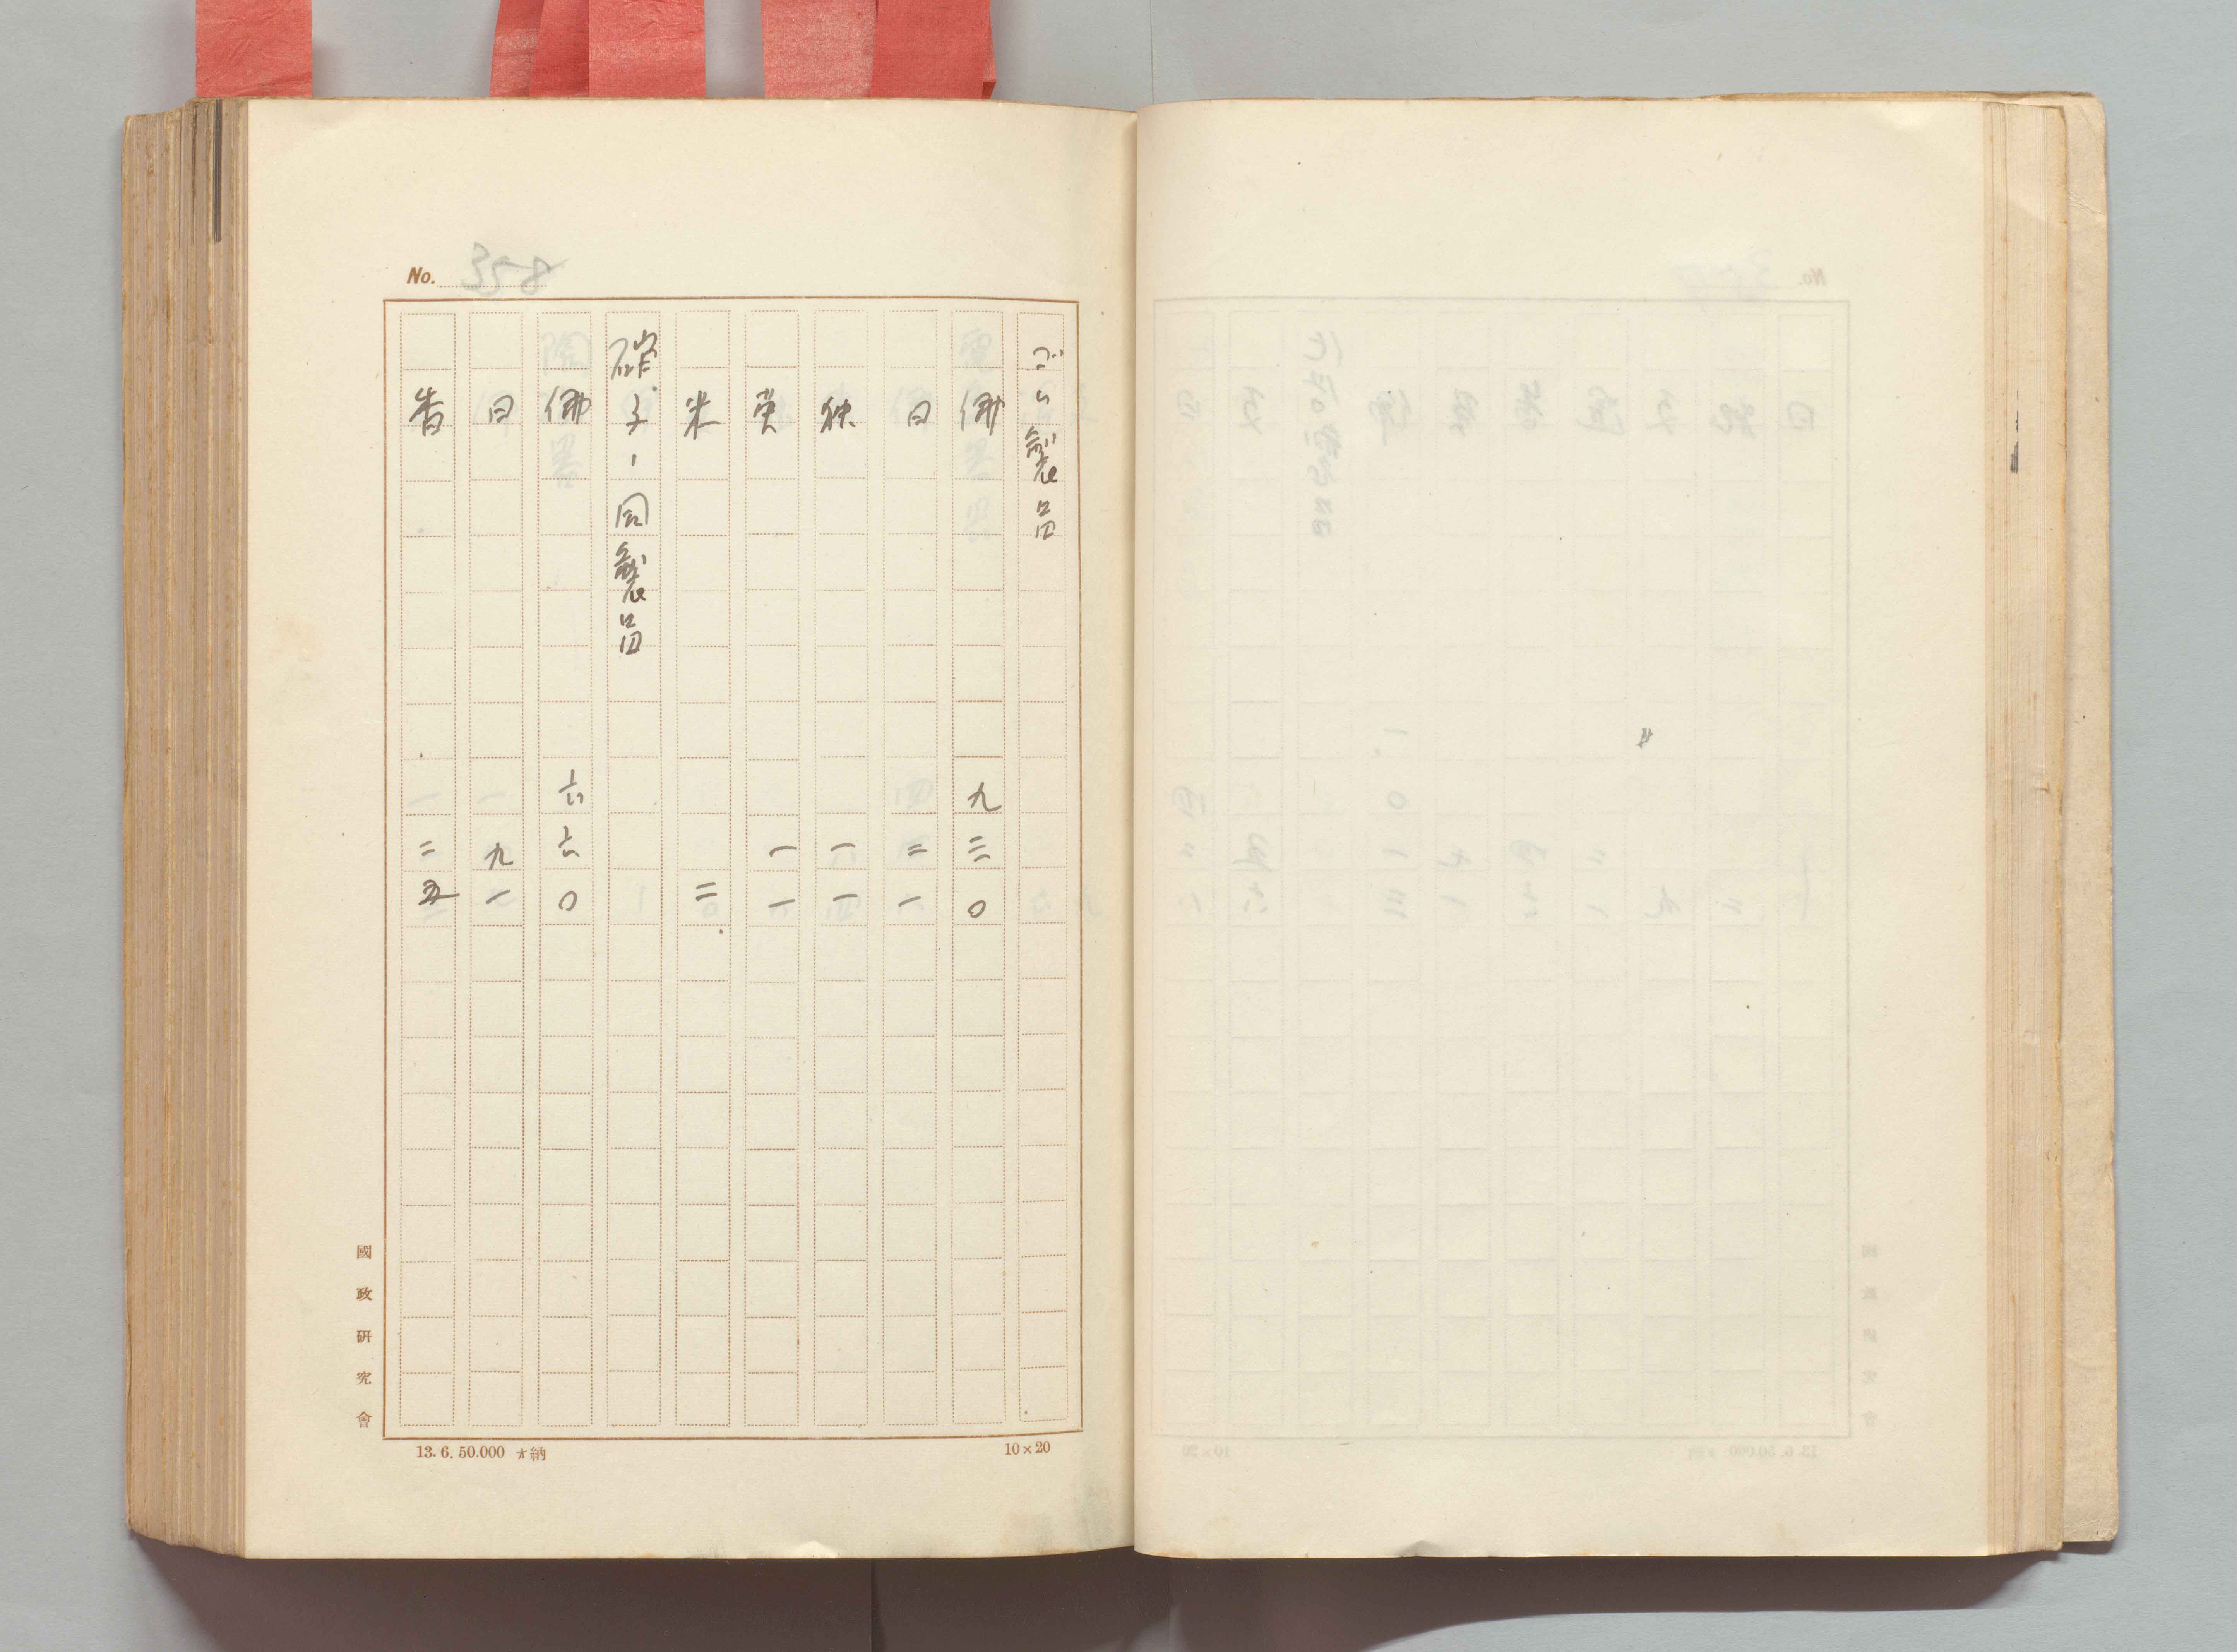 No.
ゴム製品
佛 九三〇
日 二一
独 一一
英 一一
米 二
硝子ー同製品
佛 六六〇
日 九一
香 二五
國政研究會
13.6.50.000 納
10×20